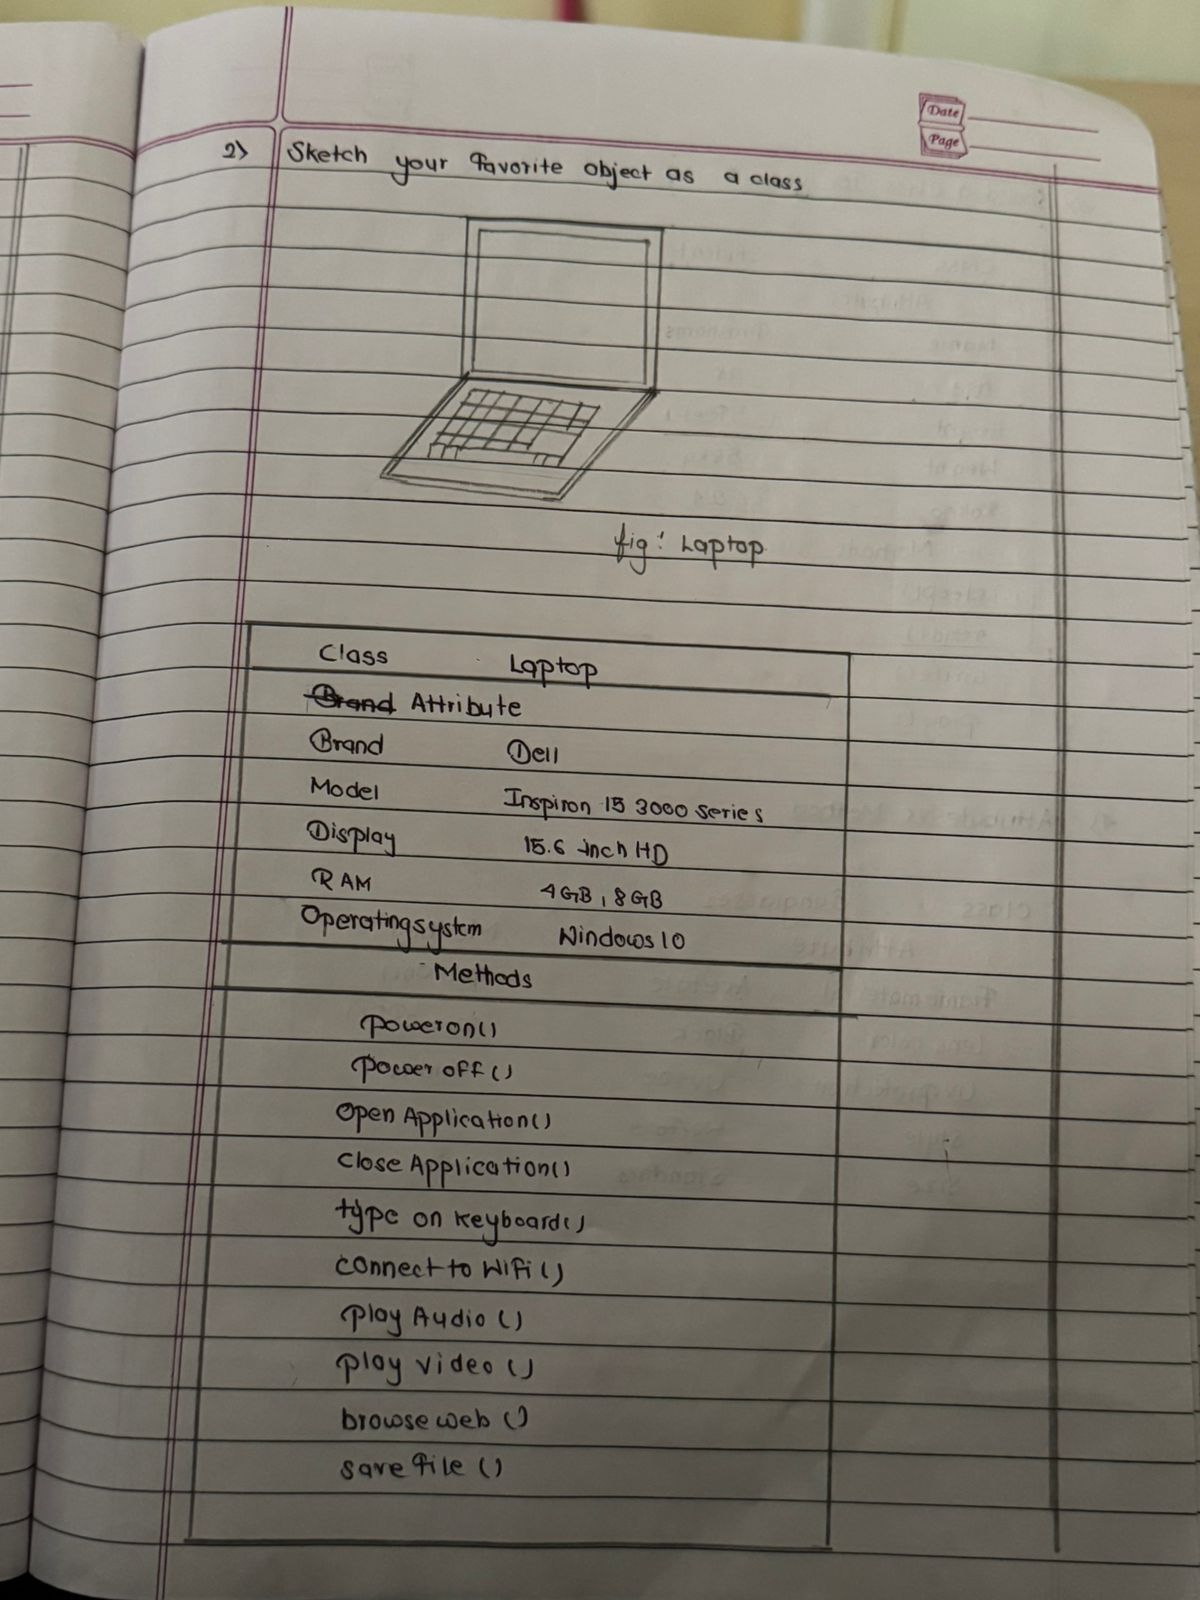 Date
Page
2) Sketch your favorite object as a class
fig: Laptop
Class Laptop
Brand Attribute
Brand Dell
Model Inspiron 15 3000 series
Display 15.6 inch HD
RAM 4GB, 8GB
Operatingsystem Windows 10
Methods
poweron()
power off()
Open Application()
Close Application()
type on keyboard()
connect to WiFi()
play Audio ()
play video ()
browse web ()
save file ()